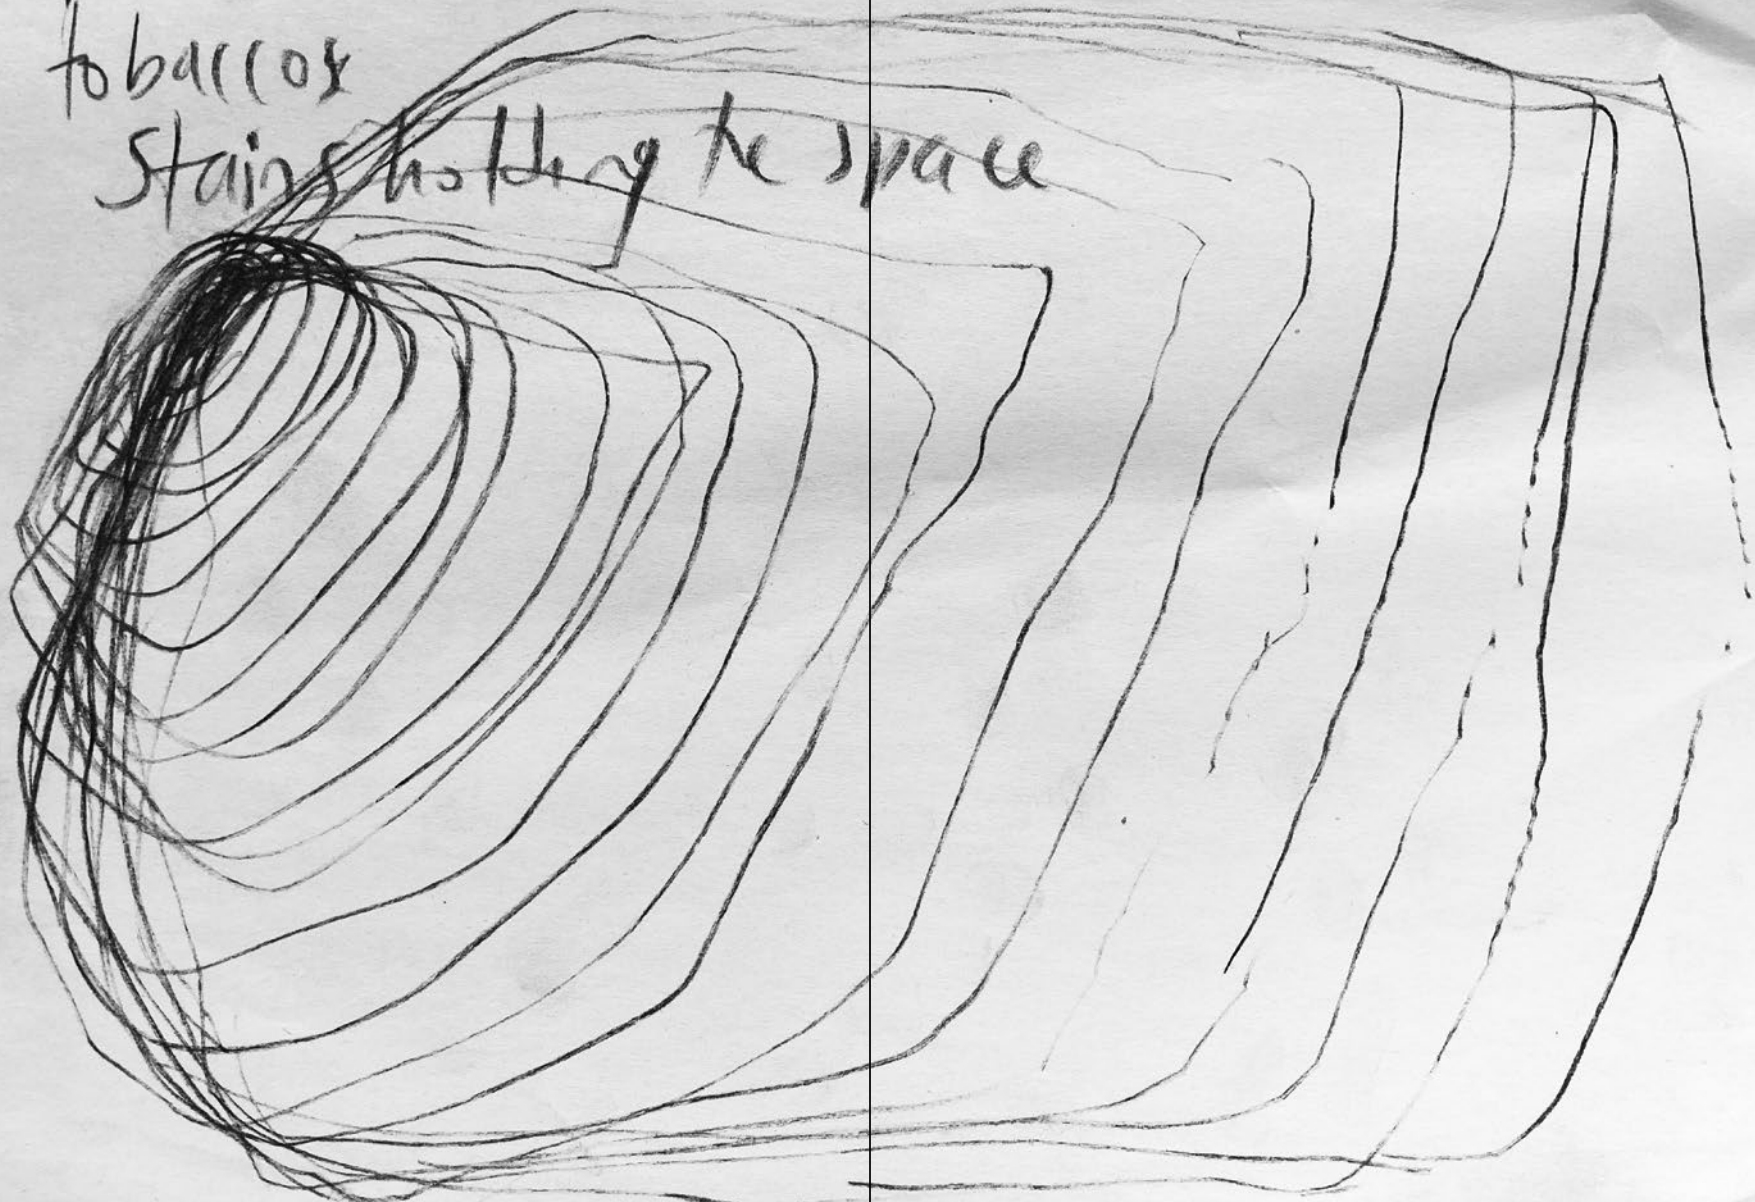 tobaccos
Stains holding the space